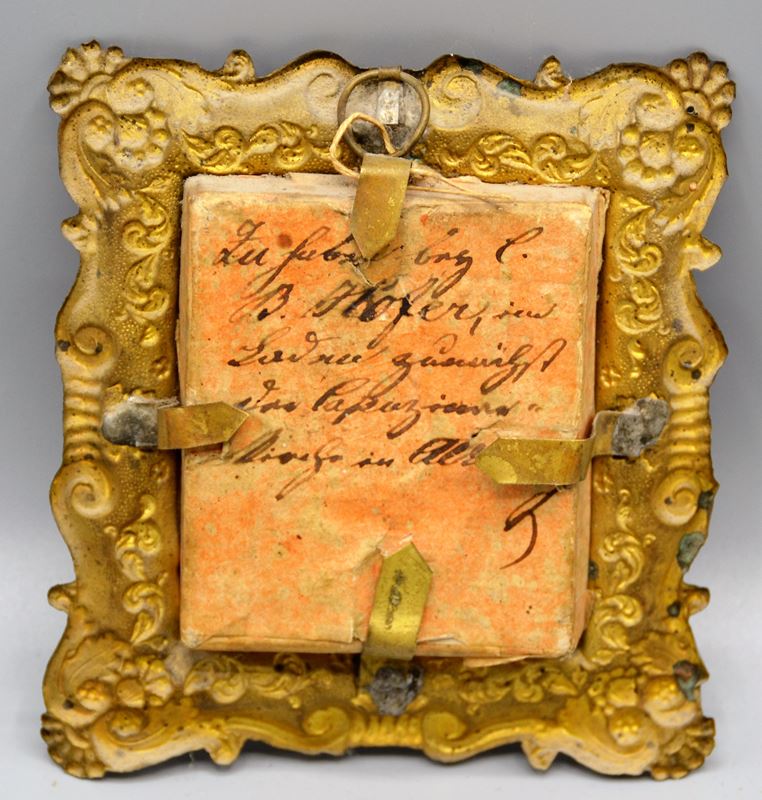 Zu haben bey C.
B. Hofer, im
Laden zunächst
der Capuziner=
Kirche in